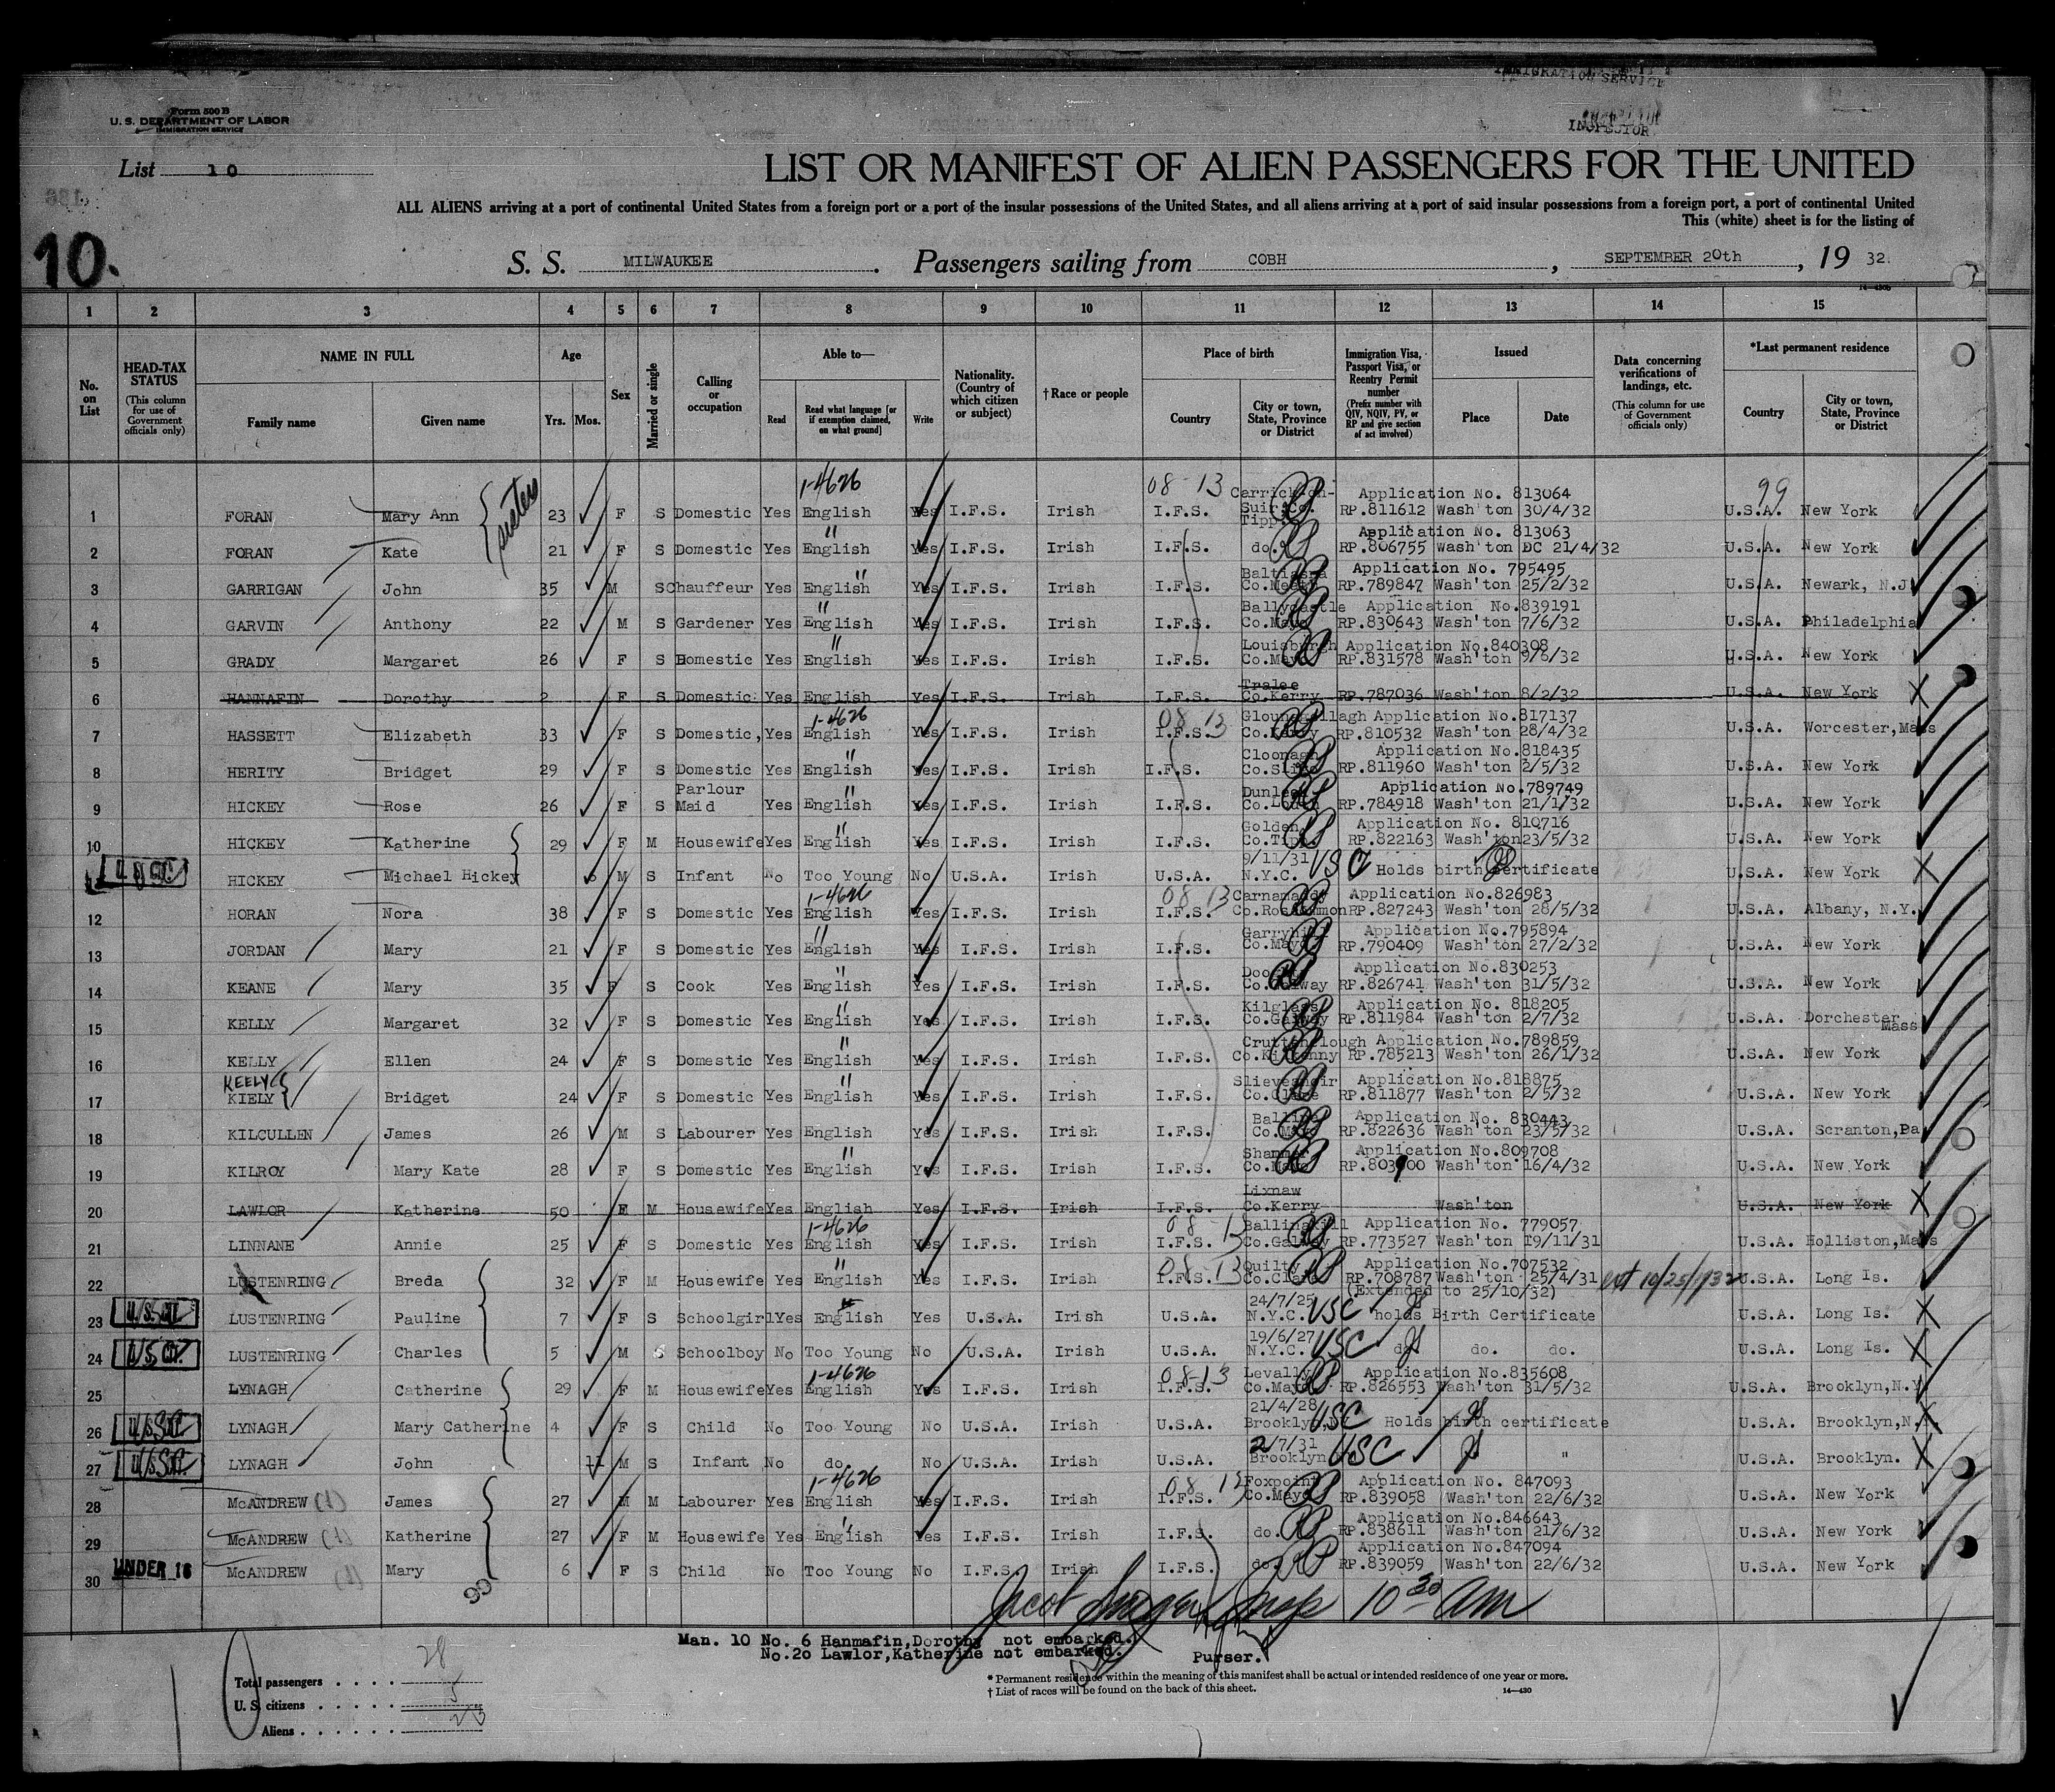 IMMIGRATION SERVICE
INSPECTOR
Form 500 B
U. S. DEPARTMENT OF LABOR
IMMIGRATION SERVICE
List 10
LIST OR MANIFEST OF ALIEN PASSENGERS FOR THE UNITED
ALL ALIENS arriving at a port of continental United States from a foreign port or a port of the insular possessions of the United States, and all aliens arriving at a port of said insular possessions from a foreign port, a port of continental United
This (white) sheet is for the listing of
10.
S. S. MILWAUKEE. Passengers sailing from COBH, SEPTEMBER 20th, 19 32.
1 2 3 4 5 6 7 8 9 10 11 12 13 14 15
No. on List
HEAD-TAX STATUS (This column for use of Government officials only)
NAME IN FULL Family name Given name
Age Yrs. Mos.
Sex
Married or single
Calling or occupation
Able to— Read Read what language [or if exemption claimed, on what ground] Write
Nationality. (Country of which citizen or subject)
† Race or people
Place of birth Country City or town, State, Province or District
Immigration Visa, Passport Visa, or Reentry Permit number (Prefix number with QIV, NQIV, PV, or RP and give section of act involved)
Issued Place Date
Data concerning verifications of landings, etc. (This column for use of Government officials only)
*Last permanent residence Country City or town, State, Province or District
1-4626 08-13 Carrick-on- Application No. 813064 99
1 FORAN Mary Ann sisters 23 F S Domestic Yes English Yes I.F.S. Irish I.F.S. Suir Co. Tipp. RP.811612 Wash'ton 30/4/32 U.S.A. New York
" Application No. 813063
2 FORAN Kate 21 F S Domestic Yes English Yes I.F.S. Irish I.F.S. do. RP.806755 Wash'ton DC 21/4/32 U.S.A. New York
" Application No. 795495
3 GARRIGAN John 35 M S Chauffeur Yes English Yes I.F.S. Irish I.F.S. Co.Meath RP.789847 Wash'ton 25/2/32 U.S.A. Newark, N.J
" Ballycastle Application No.839191
4 GARVIN Anthony 22 M S Gardener Yes English Yes I.F.S. Irish I.F.S. Co.Mayo RP.830643 Wash'ton 7/6/32 U.S.A. Philadelphia
" Louisburgh Application No.840308
5 GRADY Margaret 26 F S Domestic Yes English Yes I.F.S. Irish I.F.S. Co.Mayo RP.831578 Wash'ton 9/6/32 U.S.A. New York
Tralee
6 HANNAFIN Dorothy 2 F S Domestic Yes English Yes I.F.S. Irish I.F.S. Co.Kerry RP.787036 Wash'ton 8/2/32 U.S.A. New York X
1-4626 08 13 Application No.817137
7 HASSETT Elizabeth 33 F S Domestic, Yes English Yes I.F.S. Irish I.F.S. Co.Kerry RP.810532 Wash'ton 28/4/32 U.S.A. Worcester,Mass
" Cloonagh Application No.818435
8 HERITY Bridget 29 F S Domestic Yes English Yes I.F.S. Irish I.F.S. Co.Sligo RP.811960 Wash'ton 2/5/32 U.S.A. New York
Parlour " Application No.789749
9 HICKEY Rose 26 F S Maid Yes English Yes I.F.S. Irish I.F.S. Co.Louth RP.784918 Wash'ton 21/1/32 U.S.A. New York
" Golden Application No. 810716
10 HICKEY Katherine 29 F M Housewife Yes English Yes I.F.S. Irish I.F.S. Co.Tipp. RP.822163 Wash'ton 23/5/32 U.S.A. New York
9/11/31 USC
HICKEY Michael Hickey M S Infant No Too Young No U.S.A. Irish U.S.A. N.Y.C. Holds birth certificate U.S.A. New York X
1-4626 08 13 Application No.826983
12 HORAN Nora 38 F S Domestic Yes English Yes I.F.S. Irish I.F.S. Co.Roscommon RP.827243 Wash'ton 28/5/32 U.S.A. Albany, N.Y.
" Application No.795894
13 JORDAN Mary 21 F S Domestic Yes English Yes I.F.S. Irish I.F.S. Co.Mayo RP.790409 Wash'ton 27/2/32 U.S.A. New York
" Application No.830253
14 KEANE Mary 35 F S Cook Yes English Yes I.F.S. Irish I.F.S. Co.Galway RP.826741 Wash'ton 31/5/32 U.S.A. New York
" Kilglass Application No. 818205
15 KELLY Margaret 32 F S Domestic Yes English Yes I.F.S. Irish I.F.S. Co.Galway RP.811984 Wash'ton 2/7/32 U.S.A. Dorchester Mass
" Application No.789859
16 KELLY Ellen 24 F S Domestic Yes English Yes I.F.S. Irish I.F.S. Co.Kilkenny RP.785213 Wash'ton 26/1/32 U.S.A. New York
KEELY " Application No.818875
17 KIELY Bridget 24 F S Domestic Yes English Yes I.F.S. Irish I.F.S. Co.Clare RP.811877 Wash'ton 2/5/32 U.S.A. New York
" Application No. 830443
18 KILCULLEN James 26 M S Labourer Yes English Yes I.F.S. Irish I.F.S. Co.Mayo RP.822636 Wash'ton 23/5/32 U.S.A. Scranton,Pa
" Application No.809708
19 KILROY Mary Kate 28 F S Domestic Yes English Yes I.F.S. Irish I.F.S. Co.Mayo RP.803900 Wash'ton 16/4/32 U.S.A. New York
Lixnaw
20 LAWLOR Katherine 50 F M Housewife Yes English Yes I.F.S. Irish I.F.S. Co.Kerry Wash'ton U.S.A. New York X
1-4626 08-13 Application No. 779057
21 LINNANE Annie 25 F S Domestic Yes English Yes I.F.S. Irish I.F.S. Co.Galway RP.773527 Wash'ton 19/11/31 U.S.A. Holliston,Mass
" 08-13 Quilty Application No.707532
22 LUSTENRING Breda 32 F M Housewife Yes English Yes I.F.S. Irish I.F.S. Co.Clare RP.708787 Wash'ton 25/4/31 ext 10/25/1932 U.S.A. Long Is.
(Extended to 25/10/32)
24/7/25 USC
23 LUSTENRING Pauline 7 F S Schoolgirl Yes English Yes U.S.A. Irish U.S.A. N.Y.C. holds Birth Certificate U.S.A. Long Is. X
19/6/27 USC
24 LUSTENRING Charles 5 M S Schoolboy No Too Young No U.S.A. Irish U.S.A. N.Y.C. do. do. do. U.S.A. Long Is. X
1-4626 08-13 Levally Application No.835608
25 LYNAGH Catherine 29 F M Housewife Yes English Yes I.F.S. Irish I.F.S. Co.Mayo RP.826553 Wash'ton 31/5/32 U.S.A. Brooklyn,N.Y
21/4/28 USC
26 LYNAGH Mary Catherine 4 F S Child No Too Young No U.S.A. Irish U.S.A. Brooklyn Holds birth certificate U.S.A. Brooklyn,N.Y. X
2/7/31 USC
27 LYNAGH John 11 M S Infant No do. No U.S.A. Irish U.S.A. Brooklyn " U.S.A. Brooklyn. X
1-4626 08 13 Application No. 847093
28 McANDREW (1) James 27 M M Labourer Yes English Yes I.F.S. Irish I.F.S. Co.Mayo RP.839058 Wash'ton 22/6/32 U.S.A. New York
" Application No.846643
29 McANDREW (1) Katherine 27 F M Housewife Yes English Yes I.F.S. Irish I.F.S. do. RP.838611 Wash'ton 21/6/32 U.S.A. New York
Application No.847094
30 UNDER 16 McANDREW (1) Mary 6 F S Child No Too Young No I.F.S. Irish I.F.S. do. RP.839059 Wash'ton 22/6/32 U.S.A. New York
99
Jacob Insp 10 30 AM
Man. 10 No. 6 Hanmafin,Dorothy not embarked.
No.20 Lawlor,Katherine not embarked.
Purser.
* Permanent residence within the meaning of this manifest shall be actual or intended residence of one year or more.
† List of races will be found on the back of this sheet.
14—430
Total passengers . . . . 28
U. S. citizens . . . . . 5
Aliens . . . . . . 23